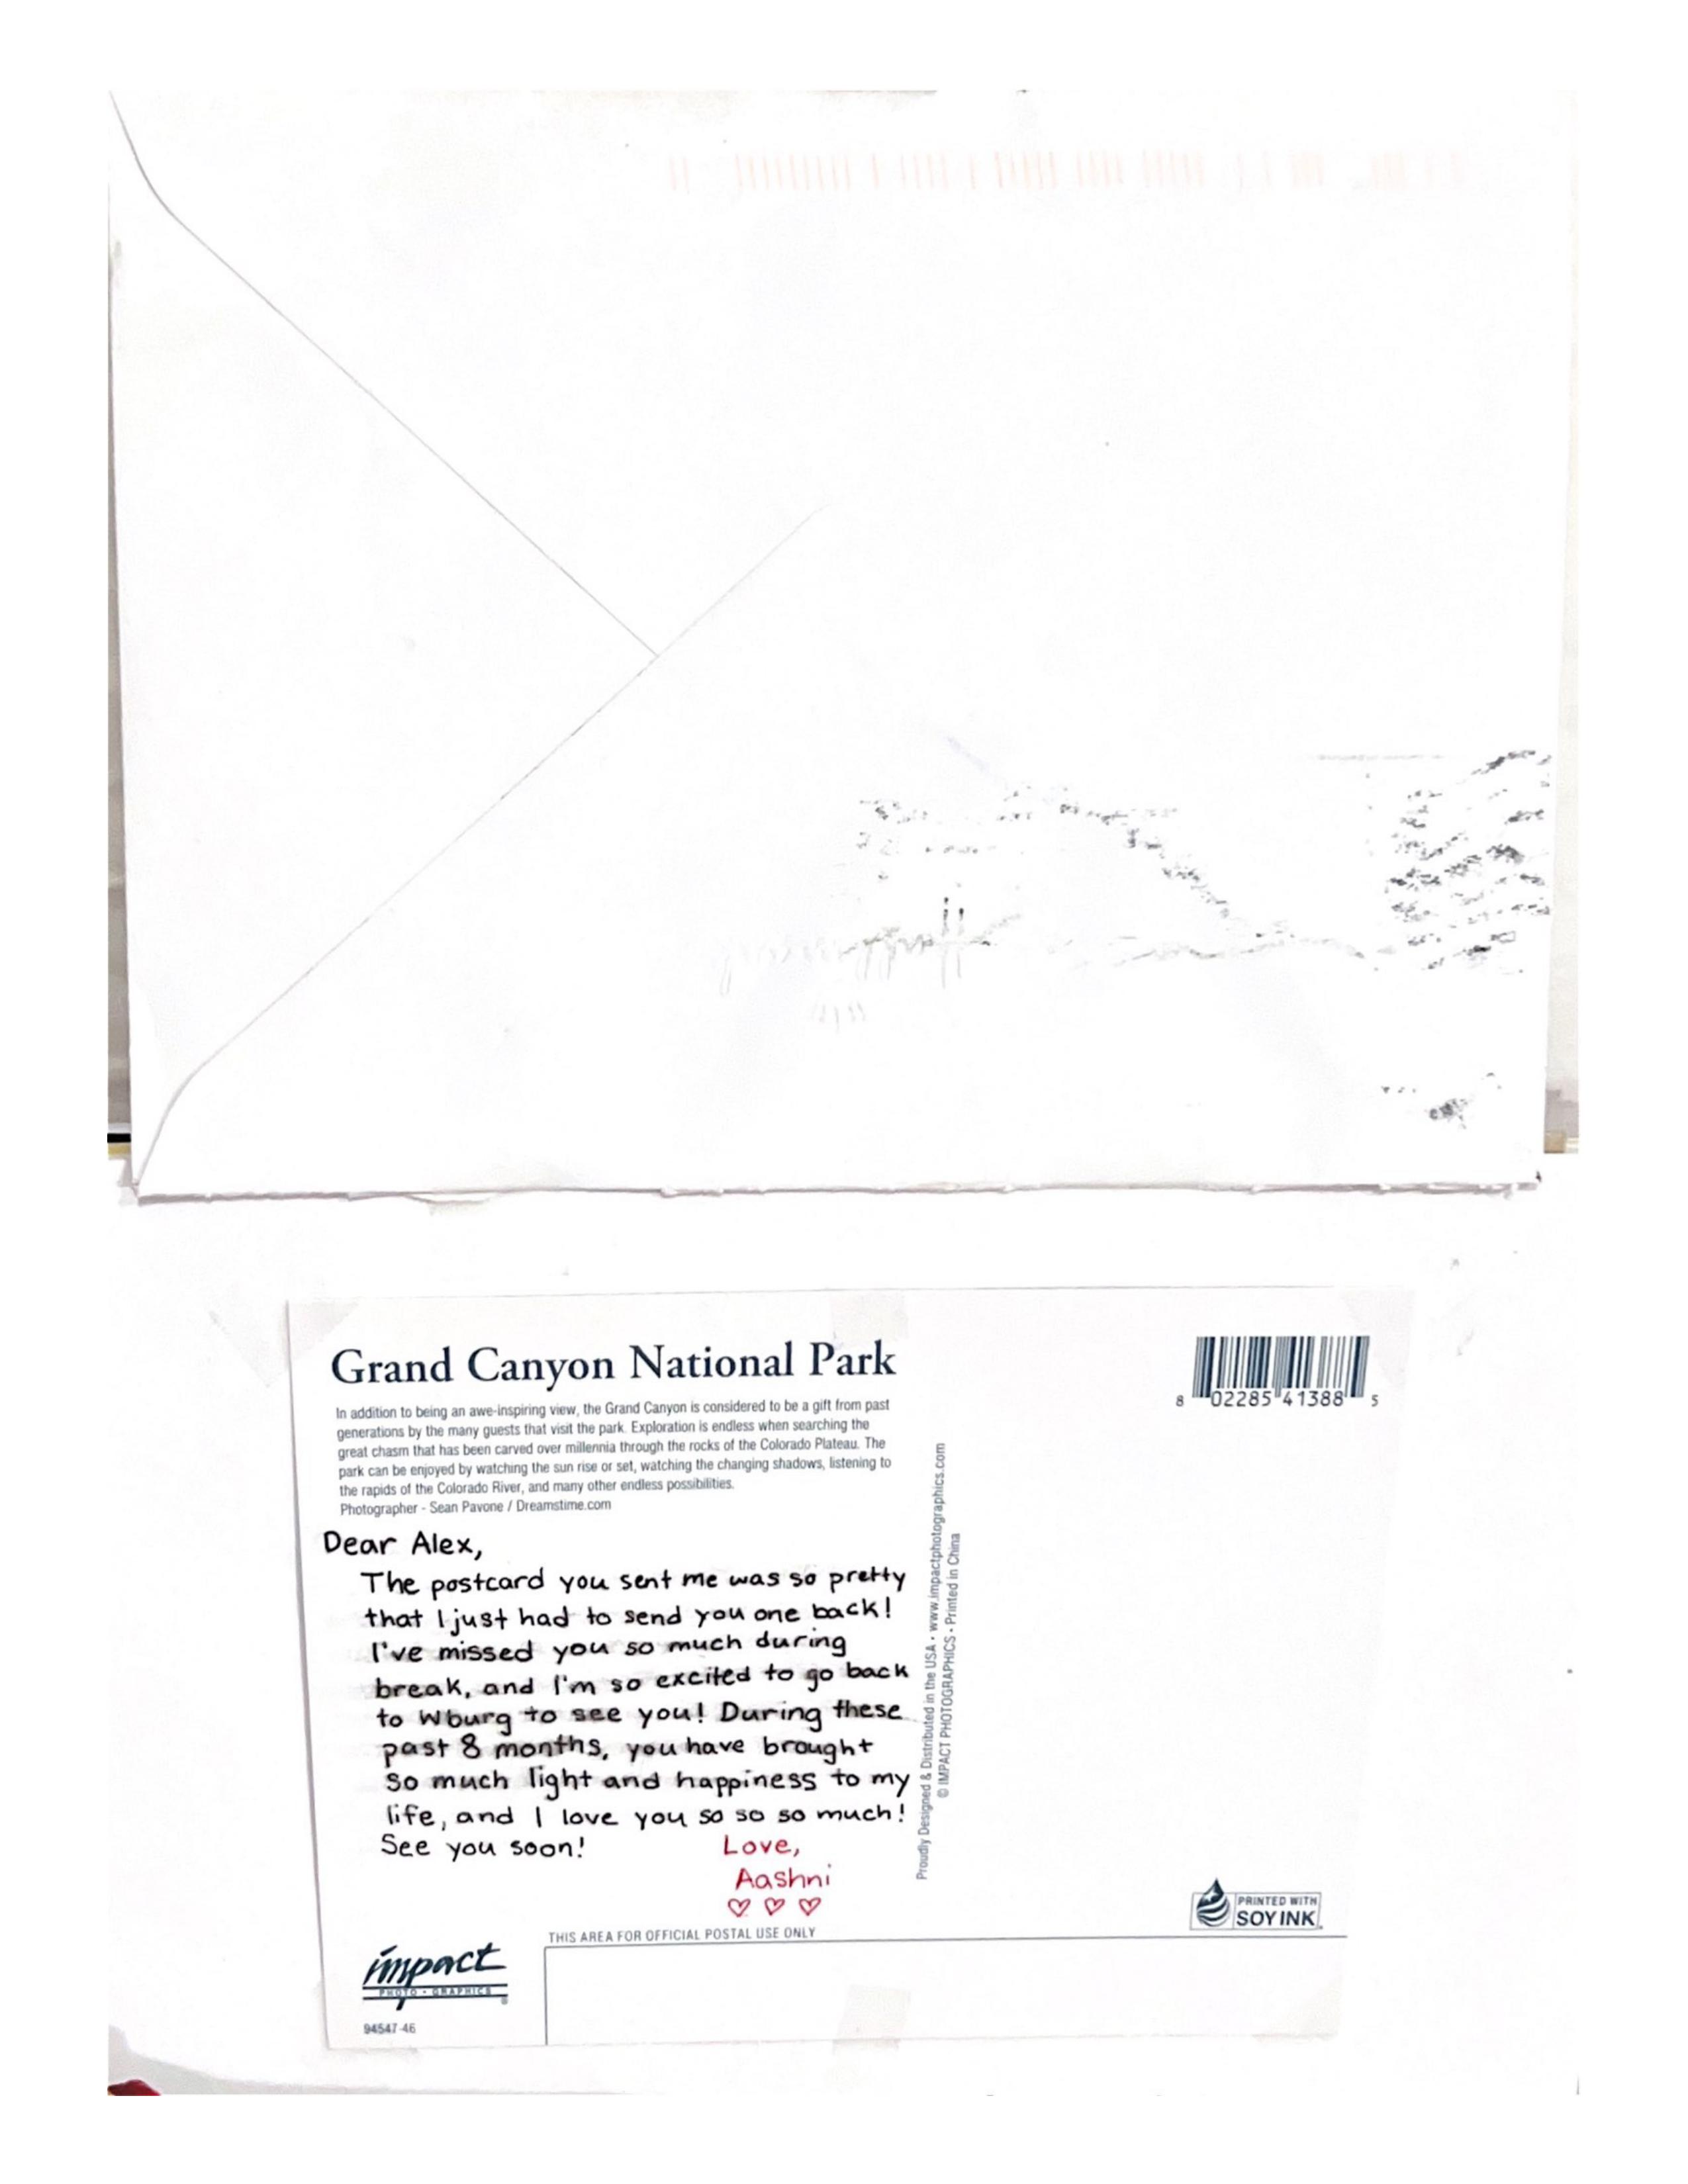 Grand Canyon National Park
In addition to being an awe-inspiring view, the Grand Canyon is considered to be a gift from past
generations by the many guests that visit the park. Exploration is endless when searching the
great chasm that has been carved over millennia through the rocks of the Colorado Plateau. The
park can be enjoyed by watching the sun rise or set, watching the changing shadows, listening to
the rapids of the Colorado River, and many other endless possibilities.
Photographer - Sean Pavone / Dreamstime.com
Dear Alex,
The postcard you sent me was so pretty
that I just had to send you one back!
I've missed you so much during
break, and I'm so excited to go back
to Wburg to see you! During these
past 8 months, you have brought
so much light and happiness to my
life, and I love you so so so much!
See you soon!
Love,
Aashni
♡ ♡ ♡
Proudly Designed & Distributed in the USA • www.impactphotographics.com
© IMPACT PHOTOGRAPHICS • Printed in China
8 02285 41388 5
PRINTED WITH
SOY INK
THIS AREA FOR OFFICIAL POSTAL USE ONLY
impact
PHOTO • GRAPHICS
94547-46